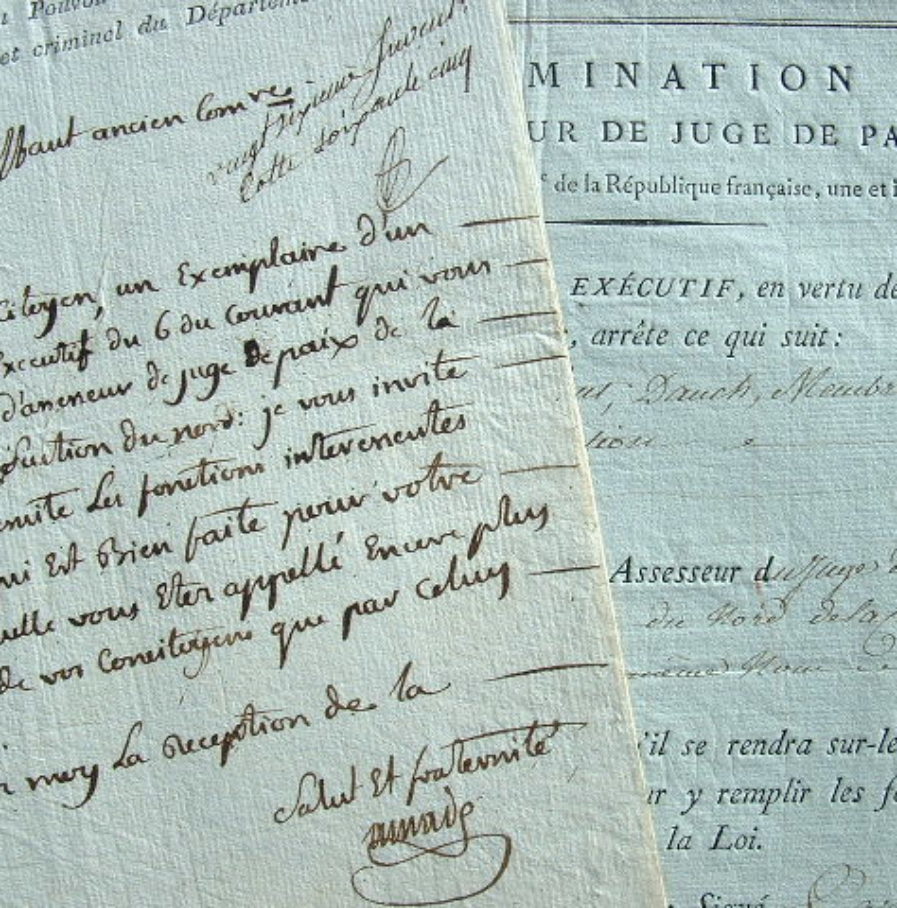 Pouvoir
et criminel du Départeme
haut ancien Comre
vingt sixieme
Cotte soixante cinq
Citoyen, un Exemplaire d'un
Executif du 6 du courant qui vous
d'assesseur de juge de paix de la
section du nord: je vous invite
suite les fonctions intereneutes
qui Est Bien faite pour votre
quelle vous Eter appellé Encore plus
de vos Concitoyens que par Celuy
moy la reception de la
Salut Et fraternité
amade
MINATION
UR DE JUGE DE PA
f de la République française, une et i
EXÉCUTIF, en vertu de
, arrête ce qui suit:
Dauch, Membr
tion
Assesseur du Juge d
du Nord de la
même Nom de
'il se rendra sur-le
ur y remplir les fo
la Loi.
Signé